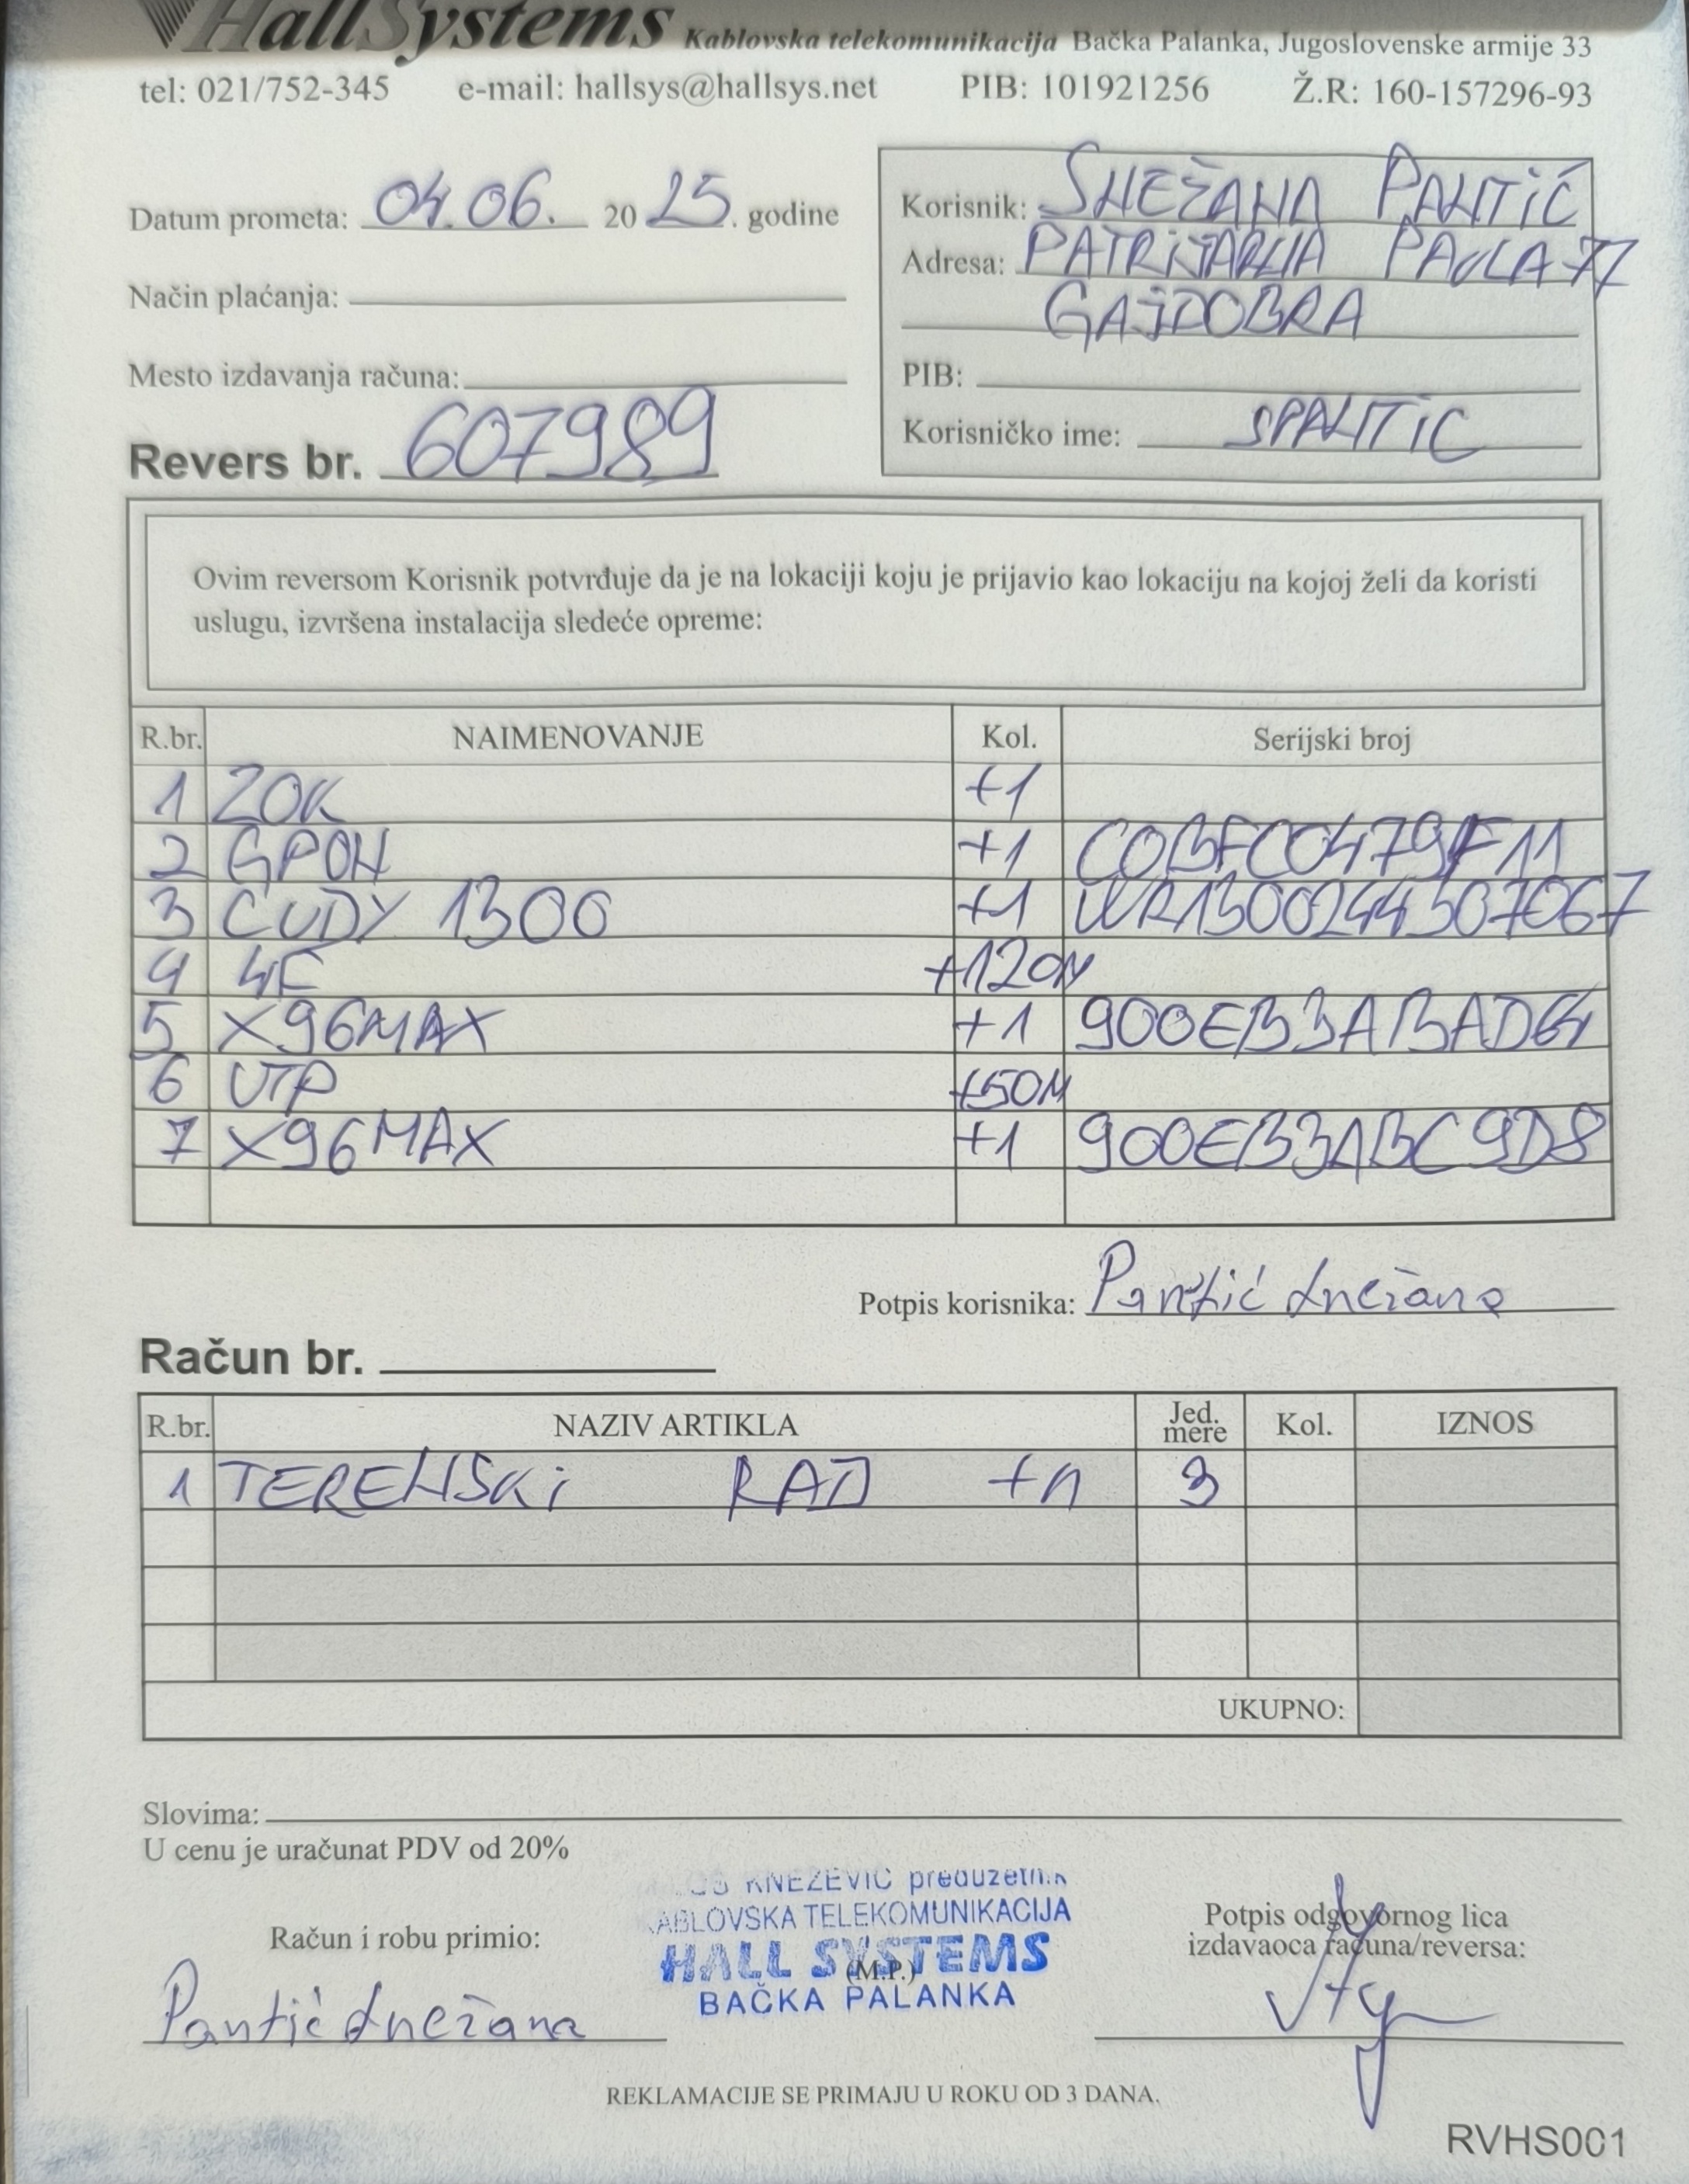 HallSystems Kablovska telekomunikacija Bačka Palanka, Jugoslovenske armije 33
tel: 021/752-345 e-mail: hallsys@hallsys.net PIB: 101921256 Ž.R: 160-157296-93
Datum prometa: 04.06. 2025. godine
Način plaćanja:
Mesto izdavanja računa:
Revers br. 607989
Korisnik: SNEŽANA PANTIĆ
Adresa: PATRIJARHA PAVLA 77
GAJDOBRA
PIB:
Korisničko ime: SPANTIC
Ovim reversom Korisnik potvrđuje da je na lokaciji koju je prijavio kao lokaciju na kojoj želi da koristi
uslugu, izvršena instalacija sledeće opreme:
R.br. NAIMENOVANJE Kol. Serijski broj
1 ZOK +1
2 GPON +1 C0BFC0479F11
3 CUDY 1300 +1 WR1300244507067
4 4F +120M
5 X96MAX +1 900EB3ABAD64
6 UTP +50M
7 X96MAX +1 900EB3ABC9D8
Potpis korisnika: Pantić Snežana
Račun br.
R.br. NAZIV ARTIKLA Jed. mere Kol. IZNOS
1 TERENSKI RAD +1 3
UKUPNO:
Slovima:
U cenu je uračunat PDV od 20%
KNEŽEVIĆ preduzetnik
KABLOVSKA TELEKOMUNIKACIJA
HALL SYSTEMS
(M.P.)
BAČKA PALANKA
Račun i robu primio:
Pantić Snežana
Potpis odgovornog lica
izdavaoca računa/reversa:
REKLAMACIJE SE PRIMAJU U ROKU OD 3 DANA.
RVHS001